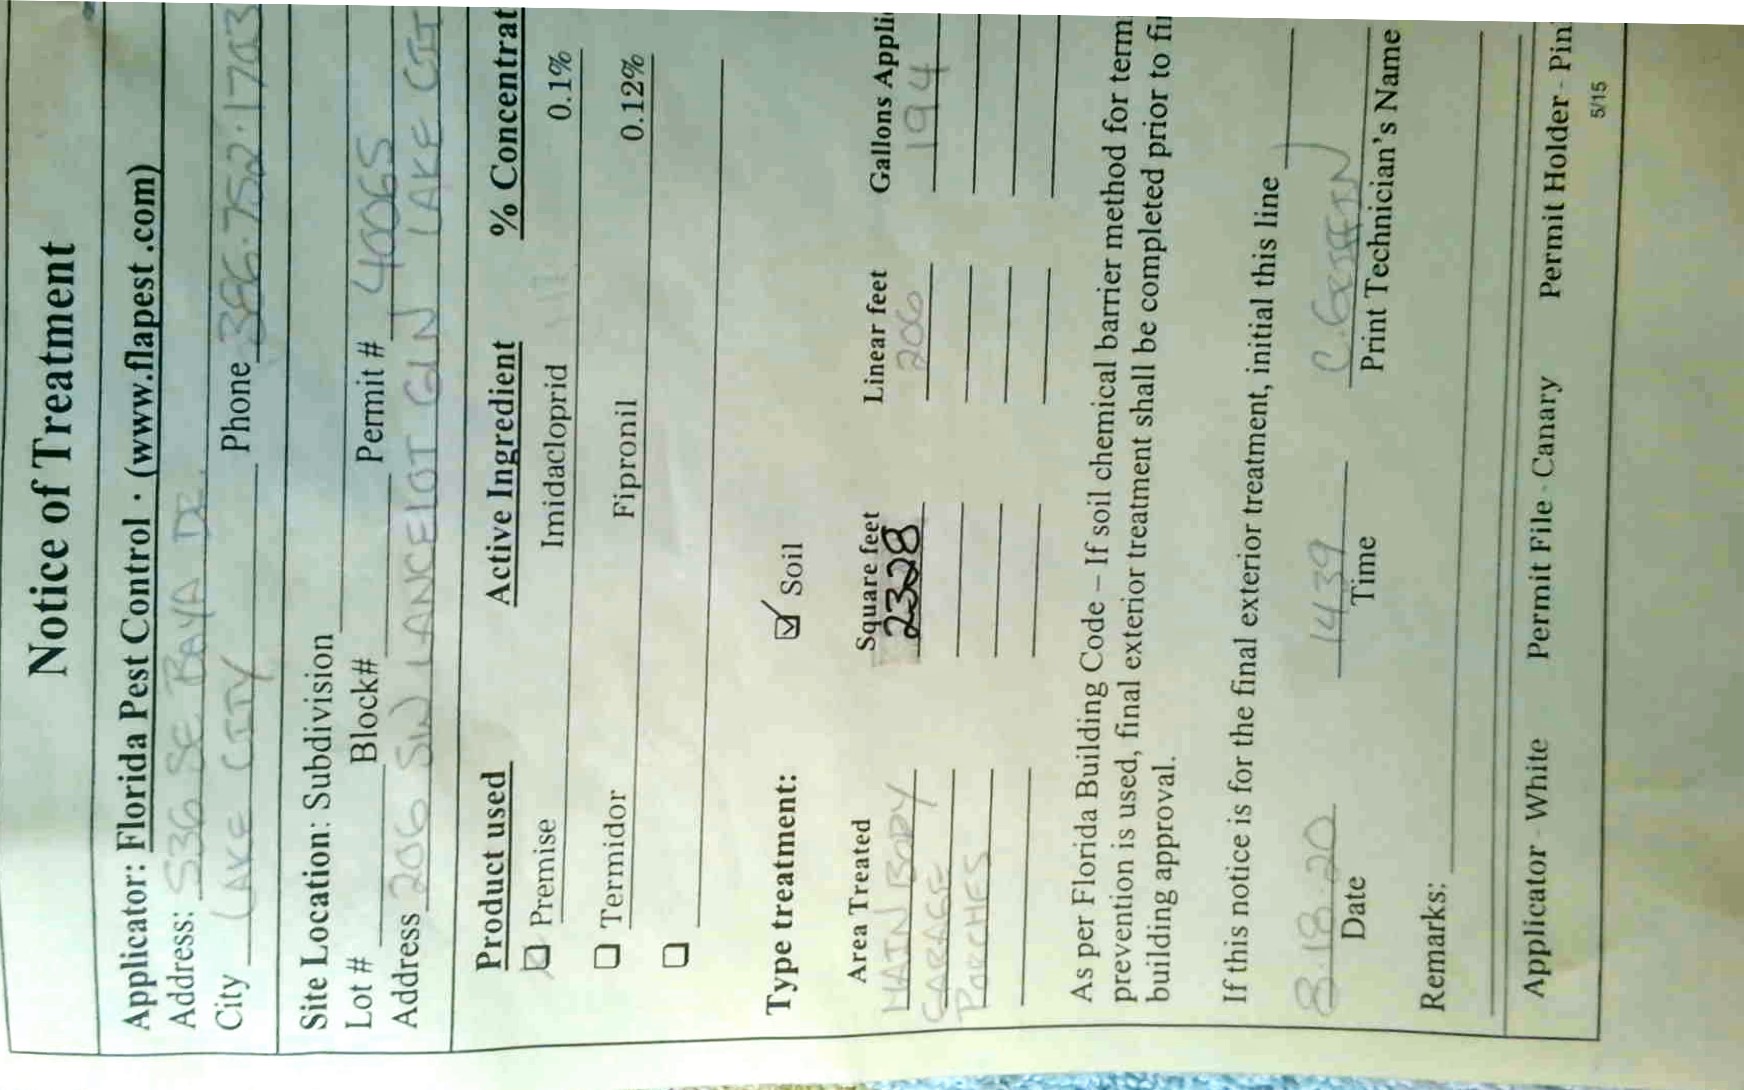 Notice of Treatment
Applicator: Florida Pest Control · (www.flapest .com)
Address: 536 SE BAYA DR.
City LAKE CITY Phone 386.752.1703
Site Location: Subdivision
Lot # Block# Permit # 40065
Address 206 SW LANCELOT GLN LAKE CIT
Product used Active Ingredient % Concentrat
Premise Imidacloprid 0.1%
Termidor Fipronil 0.12%
Type treatment: Soil
Area Treated Square feet Linear feet Gallons Appli
MAIN BODY 2328 206 194
GARAGE
PORCHES
As per Florida Building Code – If soil chemical barrier method for term
prevention is used, final exterior treatment shall be completed prior to fi
building approval.
If this notice is for the final exterior treatment, initial this line
8.18.20 1439 C. GRIFFIN
Date Time Print Technician's Name
Remarks:
Applicator - White Permit File - Canary Permit Holder - Pin
5/15